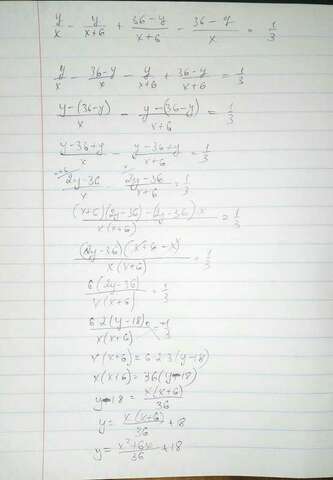 y/x - y/(x+6) + (36-y)/(x+6) - (36-y)/x = 1/3
y/x - (36-y)/x - y/(x+6) + (36-y)/(x+6) = 1/3
(y-(36-y))/x - (y-(36-y))/(x+6) = 1/3
(y-36+y)/x - (y-36+y)/(x+6) = 1/3
(2y-36)/x - (2y-36)/(x+6) = 1/3
((x+6)(2y-36)-(2y-36)x)/(x(x+6)) = 1/3
((2y-36)(x+6-x))/(x(x+6)) = 1/3
(6(2y-36))/(x(x+6)) = 1/3
(6·2(y-18))/(x(x+6)) = 1/3
x(x+6) = 6·2·3(y-18)
x(x+6) = 36(y-18)
y-18 = (x(x+6))/36
y = (x(x+6))/36 + 18
y = (x²+6x)/36 + 18